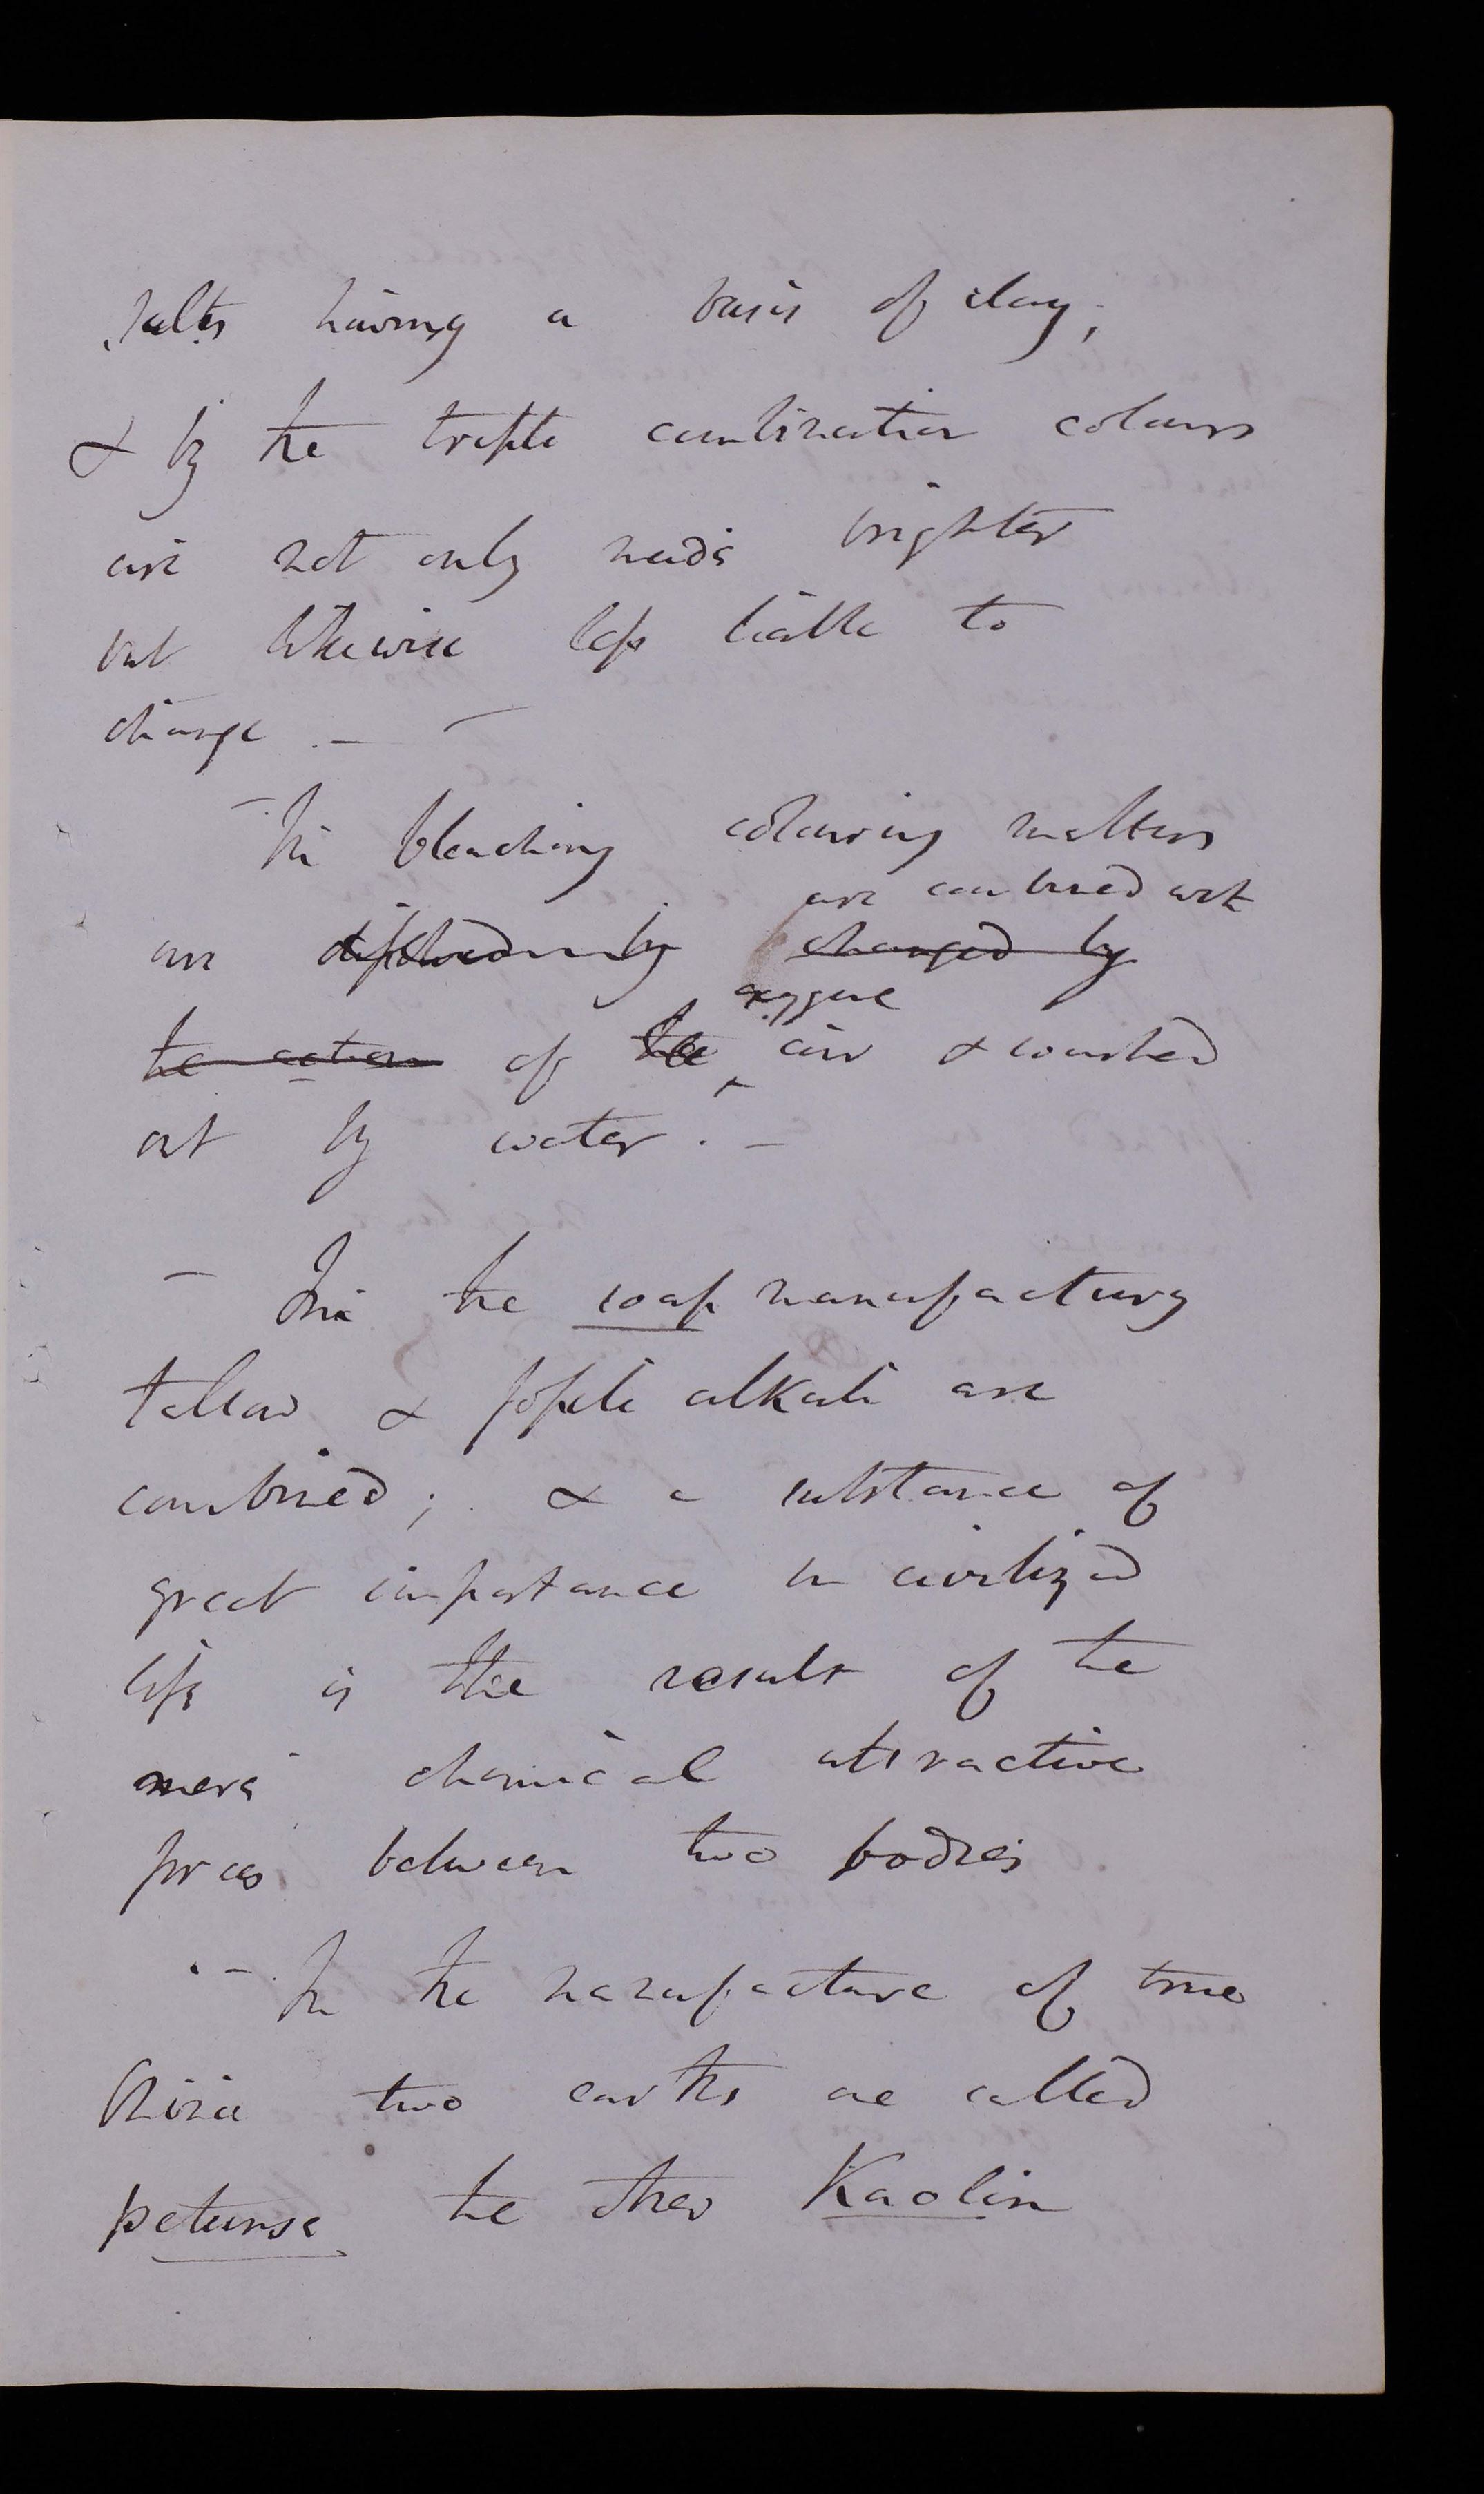 salts having a basis of clay;
& by the triple combination colours
are not only made brighter
but likewise less liable to
change. —
— In bleaching colouring matters
are combined with
are dissolved by changed by
oxygene
the action of the air & washed
out by water. —
— In the soap manufactury
tallow & fossile alkali are
combined; & a substance of
great importance in civilized
life is the result of the
mere chemical attractive
forces between two bodies
— In the manufacture of true
China two earths are called
petunse the other Kaolin